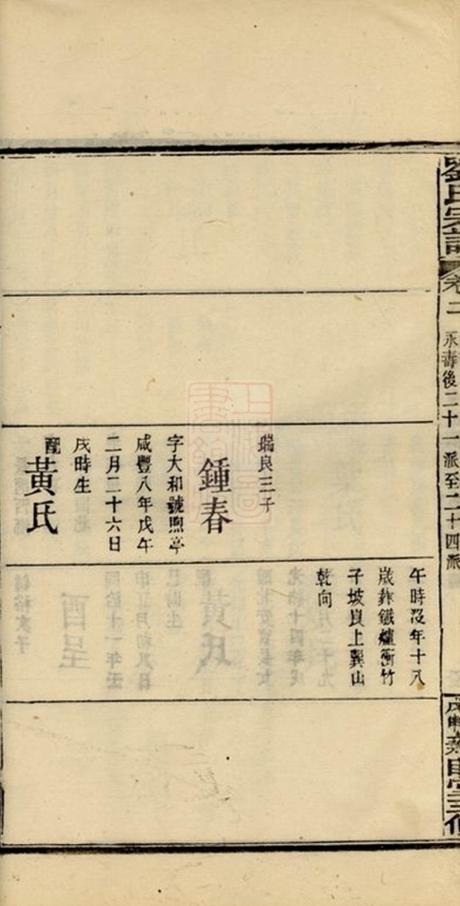 劉氏宗譜
卷二
永壽後二十一派至二十四派
堂三修
瑞良三子
鍾春
字大和號煦亭
咸豐八年戊午
二月二十六日
戌時生
配黃氏
午時沒年十八
歲葬鐵爐衝竹
子坡上巽山
乾向